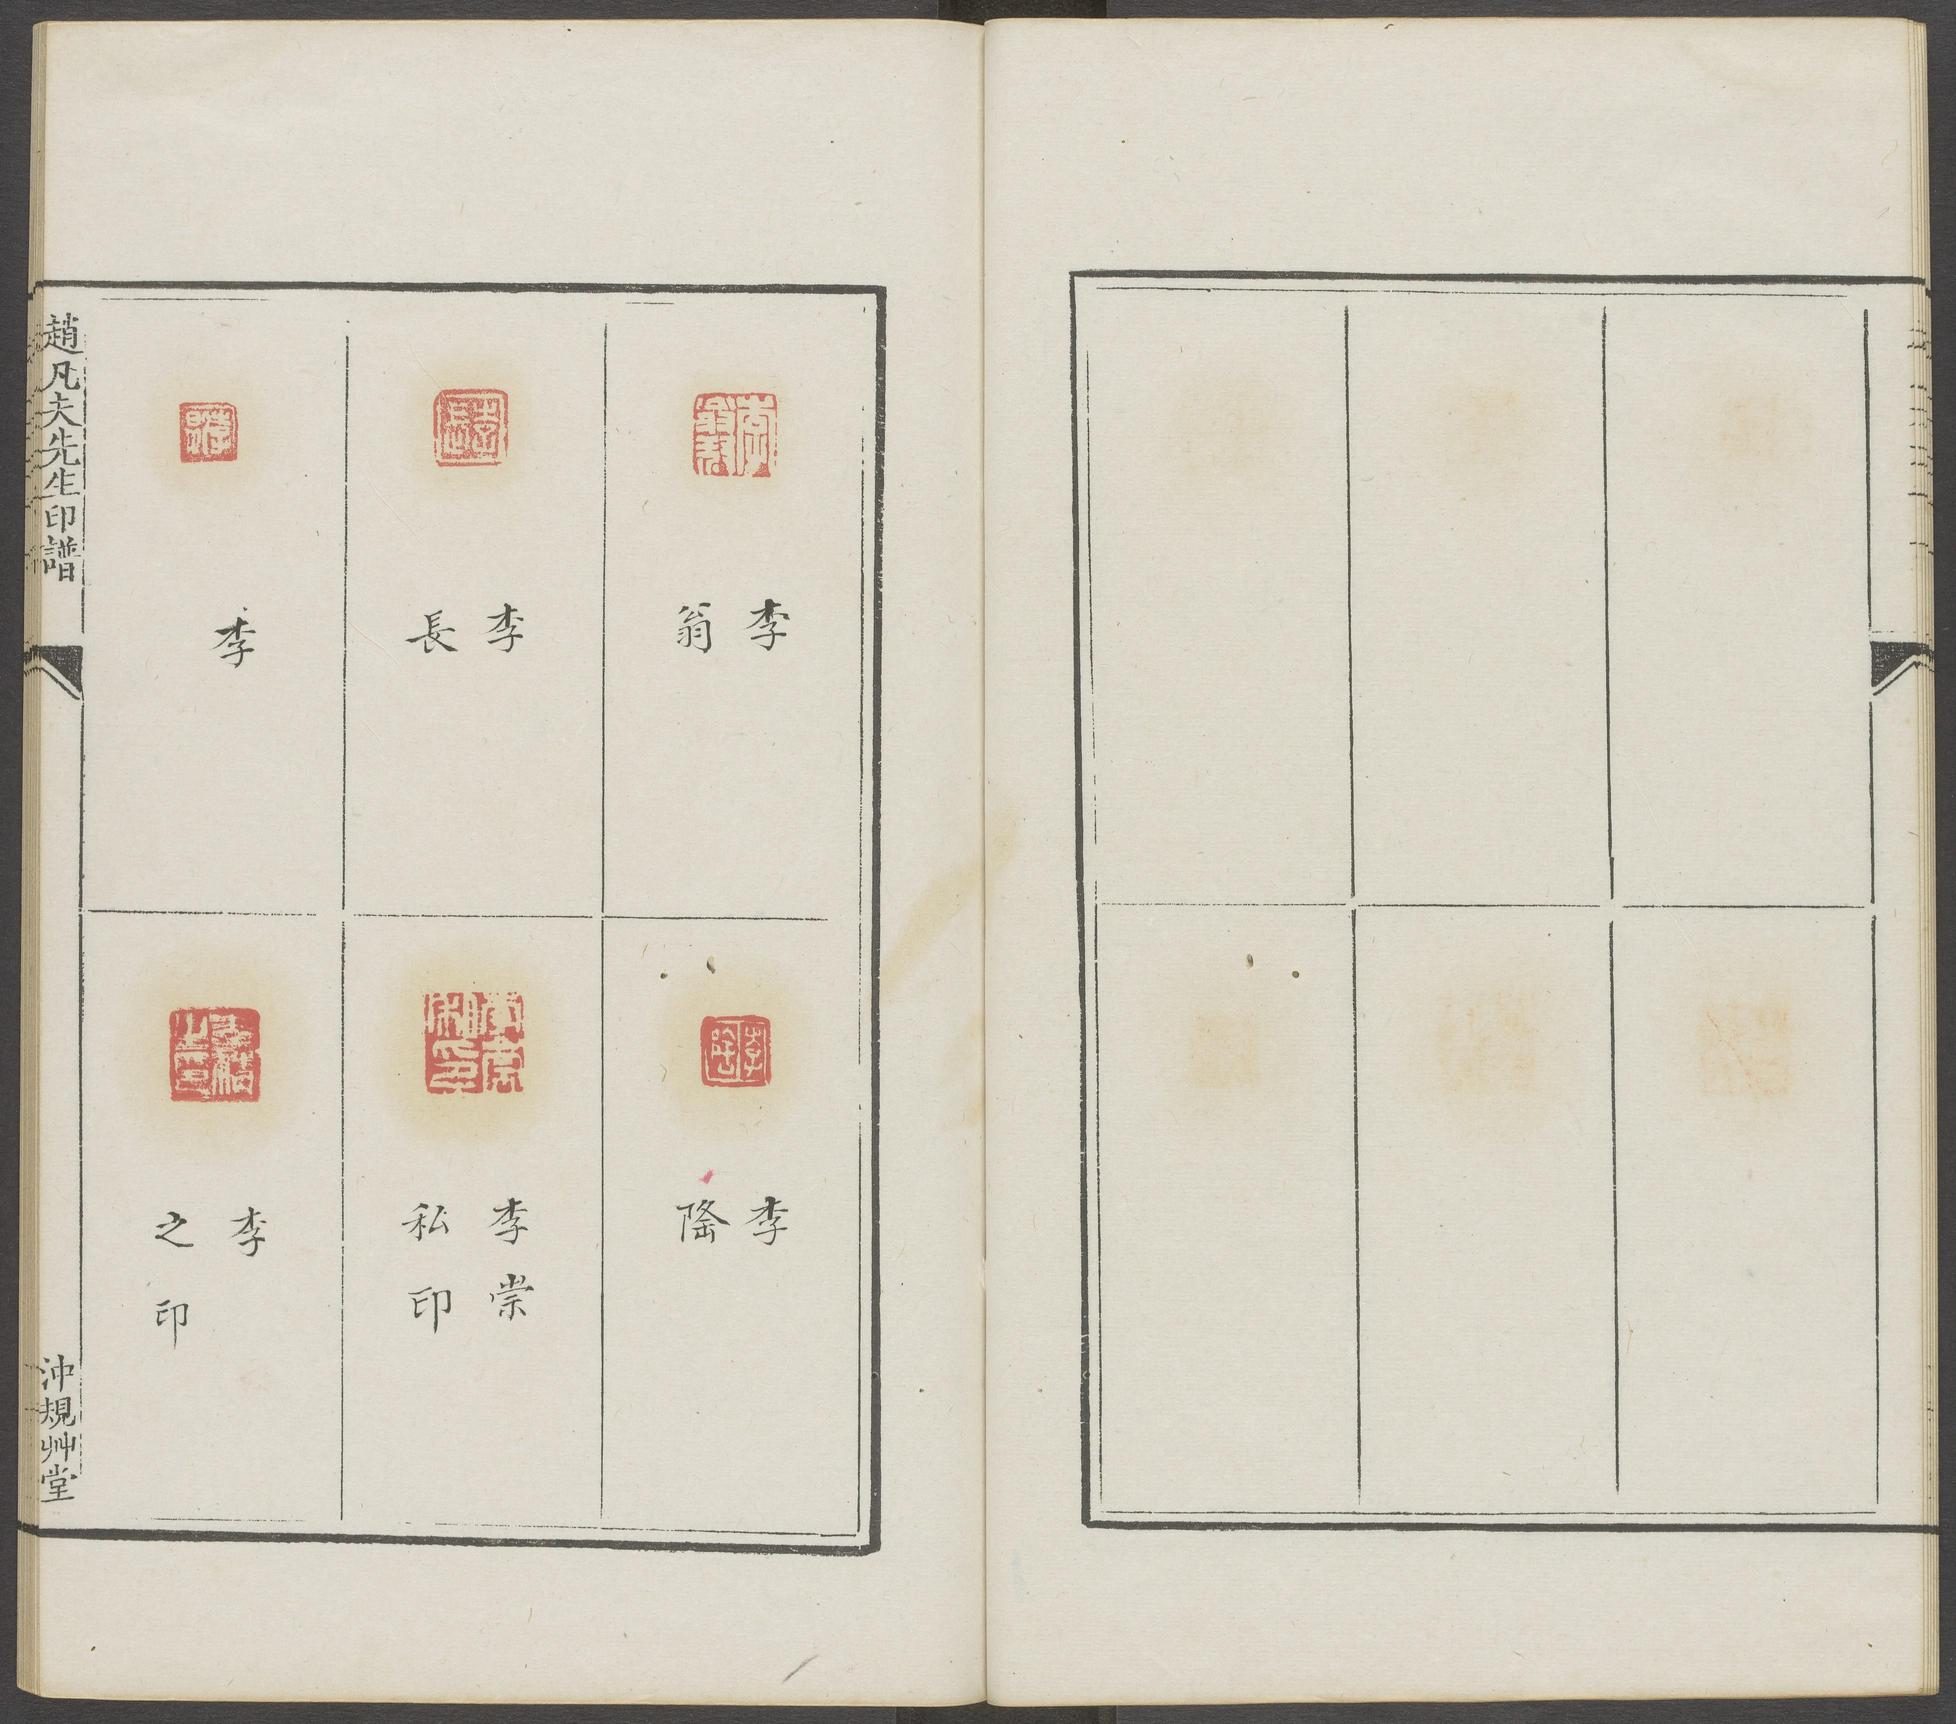 趙凡夫先生印譜
沖規艸堂
李
翁
李
長
李
李
隆
李
崇
私
印
李
之
印